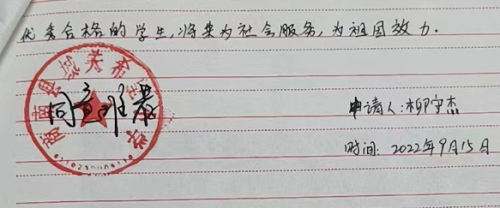 优秀合格的学生,将来为社会服务,为祖国效力.
同意推荐
申请人:柳宇杰
时间: 2022年9月15日